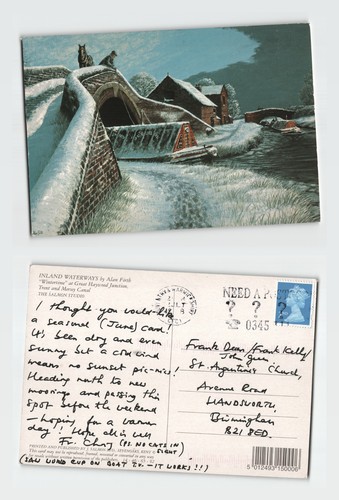 INLAND WATERWAYS by Alan Firth
"Wintertime" at Great Haywood Junction,
Trent and Mersey Canal
THE SALMON STUDIO
I thought you would like
a seasonal (June) card!
It's been dry and even
sunny but a cold wind
means no sunset picnics!
Heading north to new
moorings and passing this
spot before the weekend
– hoping for a warmer
day! Hope all is well
Fr. (P.S. NO CATS IN)
SIGHT
(SAW WORLD CUP ON BOAT T.V. – IT WORKS!!!)
PRINTED AND PUBLISHED BY J. SALMON LTD., SEVENOAKS, KENT ©
NEED A
? ? ?
0345
Frank Dean/Frank Kelly/
St. Augustine's Church,
Avenue Road
HANDSWORTH,
Birmingham
B21 8ED.
5 012493 150006